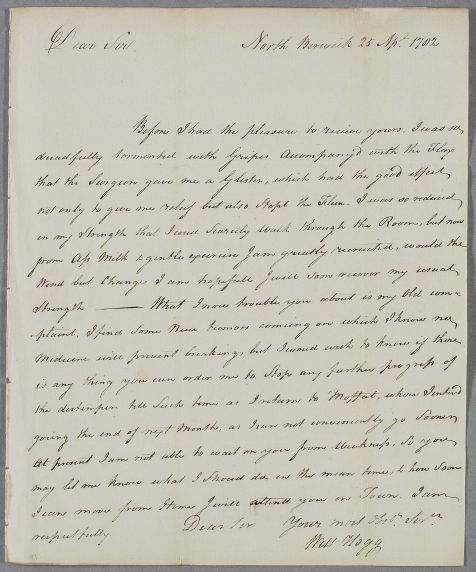 Dear Sir North Berwick 25 Apl. 1782
Before I had the pleasure to receive yours, I was so
dreadfully tormented with Gripes Accompany'd with the Flux
that the Surgeon gave me a Glister, which had the good effect
not only to give me relief but also Stopt the Flux. I was so reduced
in my Strength that I could Scarcely Walk through the Room, but now
from Ass Milk & gentle exercise I am greatly recruited, would the
Wind but Change I am hopefull I will soon recover my usual
Strength — What I now trouble you about is my Old com-
-plaint, I find some New humors coming on which I know no
Medicine will prevent breaking, but I would wish to know if there
is any thing you can order me to Stop any further progress of
the distemper till Such time as I return to Moffat, where I intend
going the end of next Month, as I can not conveniently go Sooner
At present I am not able to wait on you from Weakness, So you
may let me Know what I Should do, in the mean time, & how Soon
I can move from Home I will attend you in Town. I am
respectfully Dear Sir Your most Hble. Servt.
Will Hogg